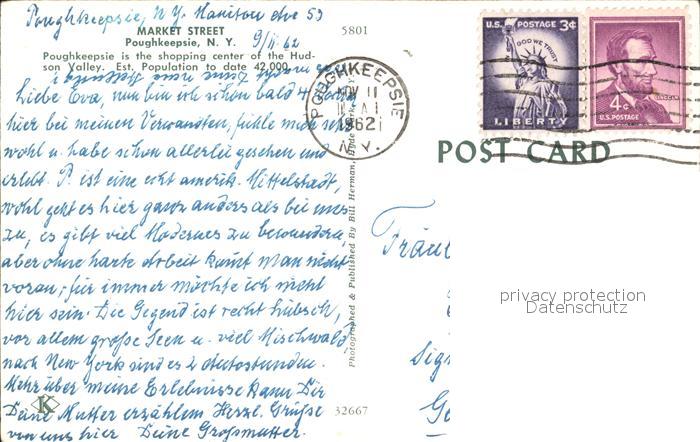 Poughkeepsie, N.Y. Manitou Ave 53
9/11 62
MARKET STREET
Poughkeepsie, N. Y.
Poughkeepsie is the shopping center of the Hud-
son Valley. Est. Population to date 42,000.
5801
Liebe Eva, nun bin ich schon bald 4
hier bei meinen Verwandten, fühle mich sehr
wohl u. habe schon allerlei gesehen und
erlebt. P. ist eine echt amerik. Mittelstadt,
wohl geht es hier ganz anders als bei uns
zu, es gibt viel Modernes zu bewundern,
aber ohne harte Arbeit kommt man nicht
voran, für immer möchte ich nicht
hier sein. Die Gegend ist recht hübsch,
vor allem große Seen u. viel Mischwald,
nach New York sind es 2 Autostunden.
Mehr über meine Erlebnisse kann Dir
Deine Mutter erzählen. Herzl. Grüße
von uns hier Deine Großmutter.
K
32667
Photographed & Published By Bill Herman, Hyde Park
POUGHKEEPSIE
NOV 11
1962
N.Y.
U.S. POSTAGE 3¢
IN GOD WE TRUST
LIBERTY
4¢
LINCOLN
U.S. POSTAGE
POST CARD
Fräul
Sigr
Ge
privacy protection
Datenschutz